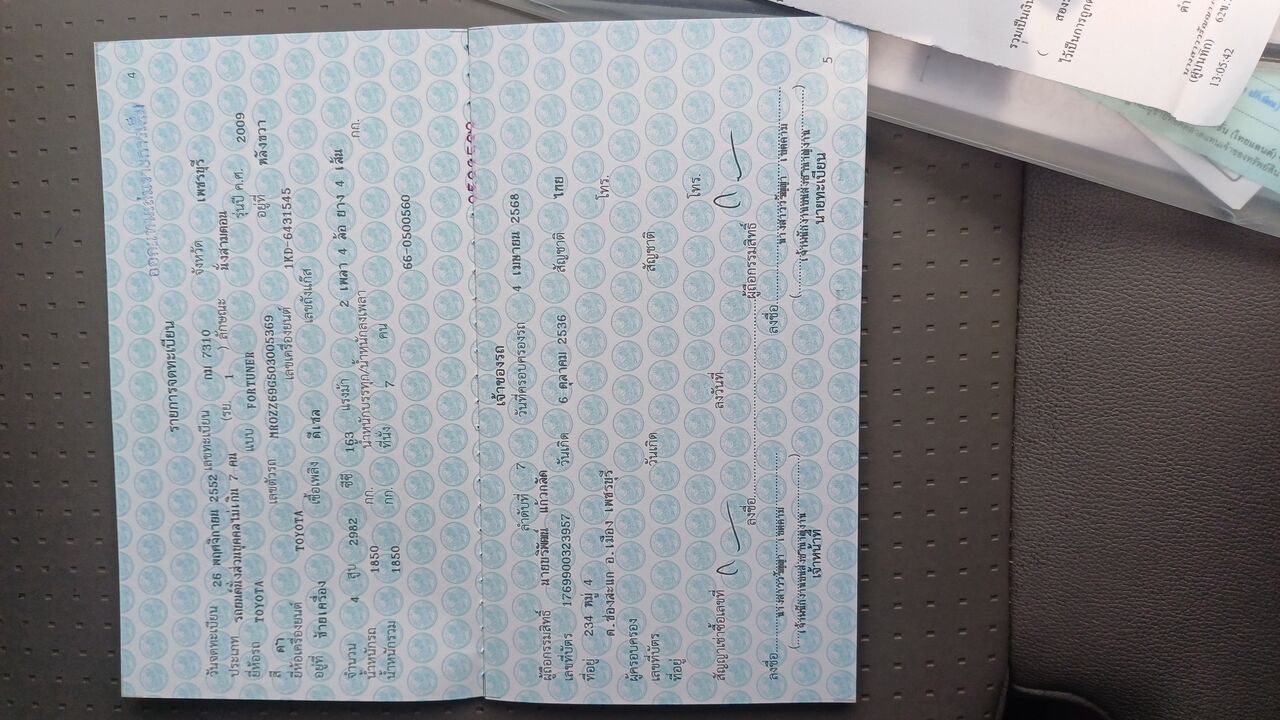 4
รายการจดทะเบียน
วันจดทะเบียน 26 พฤศจิกายน 2552 เลขทะเบียน กม 7310 จังหวัด เพชรบุรี
ประเภท รถยนต์นั่งส่วนบุคคลไม่เกิน 7 คน (รย. 1 ) ลักษณะ นั่งสามตอน
ยี่ห้อรถ TOYOTA แบบ FORTUNER รุ่นปี ค.ศ. 2009
สี ดำ เลขตัวรถ MROZZ69G503005369 อยู่ที่ หลังขวา
ยี่ห้อเครื่องยนต์ TOYOTA เลขเครื่องยนต์ 1KD-6431545
อยู่ที่ ซ้ายเครื่อง เชื้อเพลิง ดีเซล เลขถังแก๊ส
จำนวน 4 สูบ 2982 ซีซี 163 แรงม้า 2 เพลา 4 ล้อ ยาง 4 เส้น
น้ำหนักรถ 1850 กก. น้ำหนักบรรทุก/น้ำหนักลงเพลา กก.
น้ำหนักรวม 1850 กก ที่นั่ง 7 คน
66-0500560
เจ้าของรถ
ลำดับที่ 7 วันที่ครอบครองรถ 4 เมษายน 2568
ผู้ถือกรรมสิทธิ์ แก้วกลัด
เลขที่บัตร 1769900323957 วันเกิด 6 ตุลาคม 2536 สัญชาติ ไทย
ที่อยู่ 234 หมู่ 4 โทร.
ต.ช่องสะแก อ.เมือง เพชรบุรี
ผู้ครอบครอง
เลขที่บัตร วันเกิด สัญชาติ
ที่อยู่ โทร.
สัญญาเช่าซื้อเลขที่ ลงวันที่
ลงชื่อ ผู้ถือกรรมสิทธิ์
ลงชื่อ ลงชื่อ
เจ้าหน้าที่ นายทะเบียน
5
รวมเป็นเงิน
(ผู้บันทึก)
13:05:42